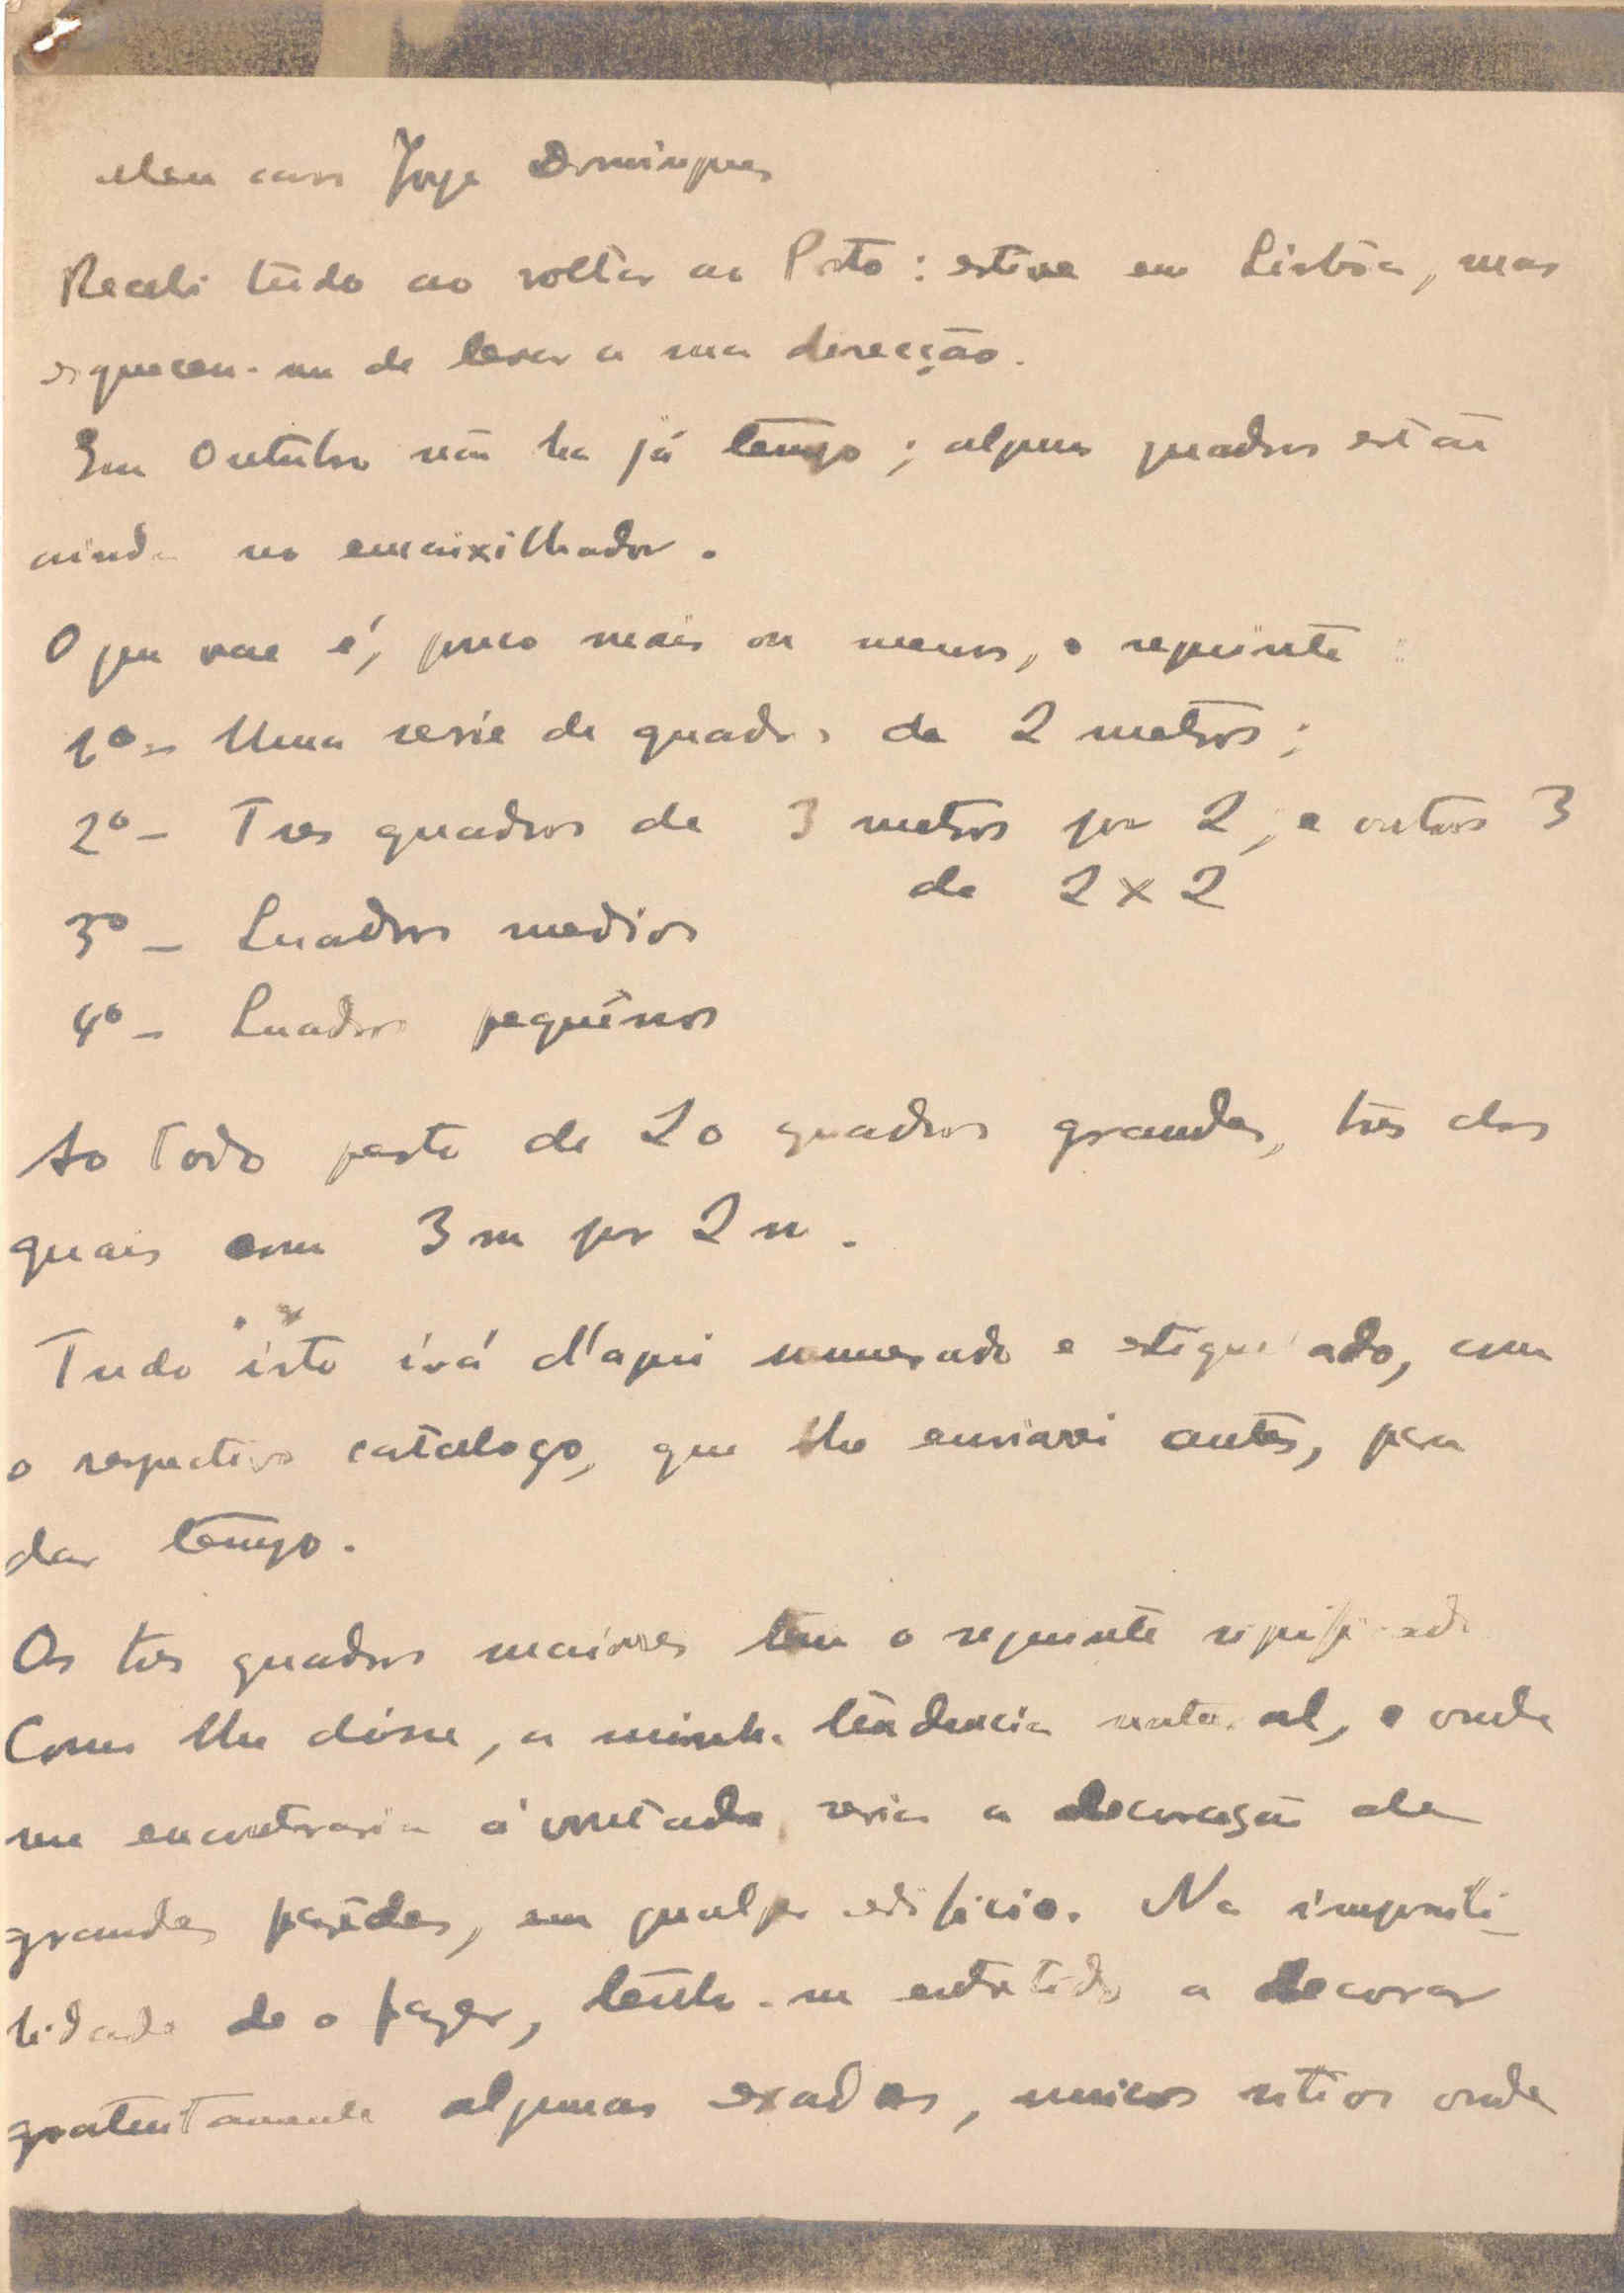 Meu caro Jorge Domingues
Recebi tudo ao voltar ao Porto: estive em Lisbôa, mas
esqueceu-me de levar a sua direcção.
Em Outubro não ha já tempo; alguns quadros estão
ainda no encaixilhador.
O que vae é, pouco mais ou menos, o seguinte:
1º- Uma serie de quadros de 2 metros;
2º- Tres quadros de 3 metros por 2, e outros 3
de 2 x 2
3º- Quadros medios
4º- Quadros pequênos
Ao todo perto de 20 quadros grandes, tres dos
quais com 3m por 2m.
Tudo isto irá d'aqui numerado e etiquetado, com
o respectivo catalogo, que lhe enviarei antes, para
dar tempo.
Os tres quadros maiores têm o seguinte significado
Como lhe disse, a minha tendencia natural, e onde
me encontraria á vontade, seria a decoração de
grandes parêdes, em qualquer edificio. Na impossibi-
lidade de o fazer, tenho-me entretido a decorar
gratuitamente algumas escadas, unicos sitios onde